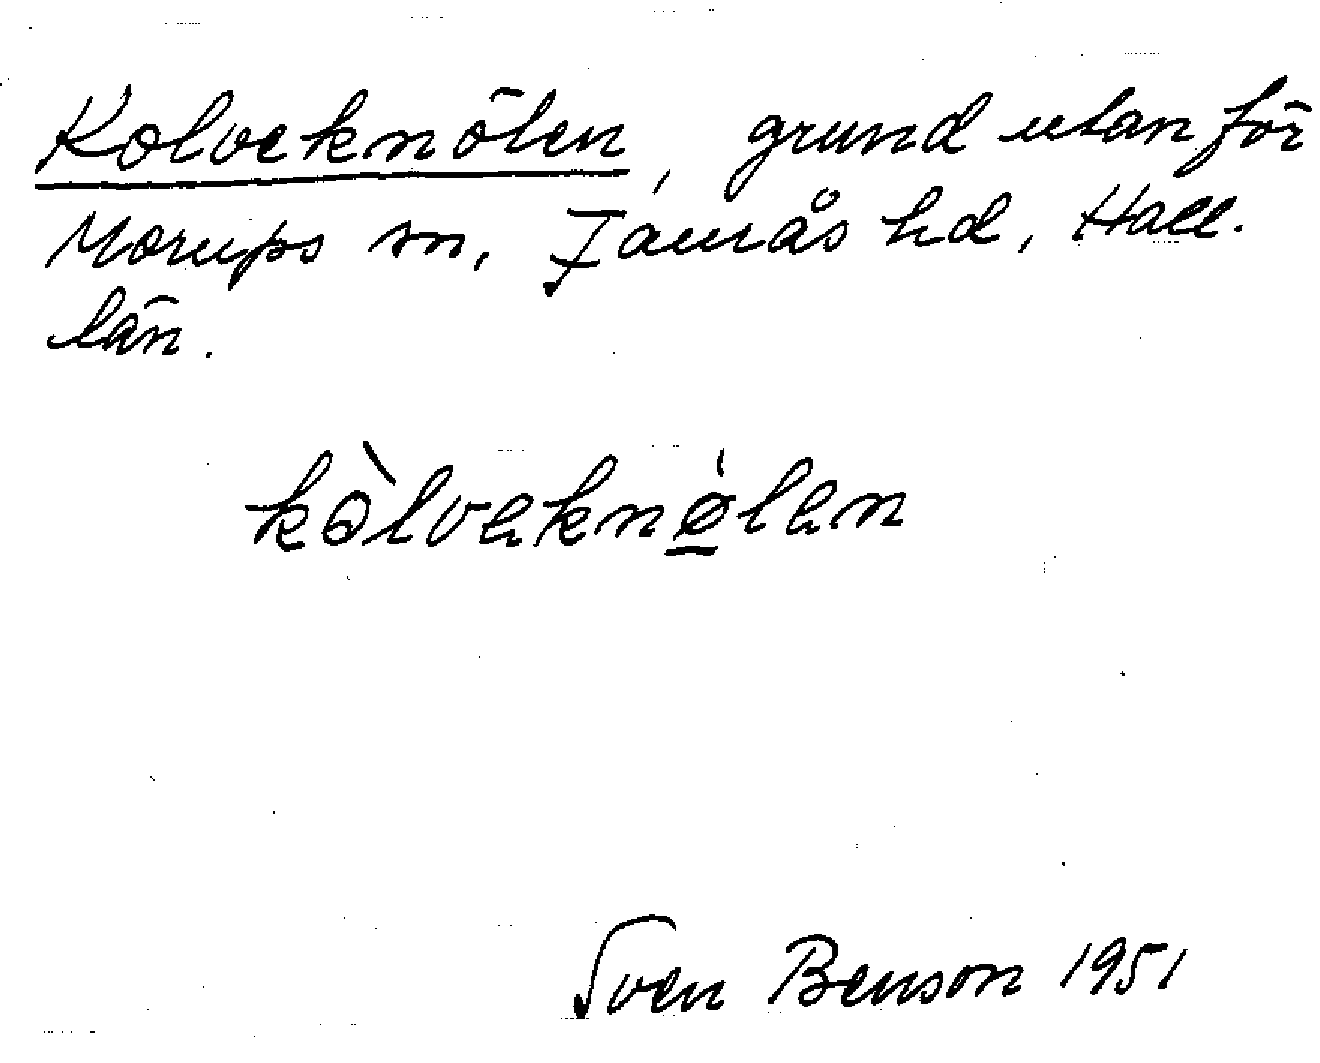 Kolveknölen, grund utanför
Morups sn, Faurås hd, Hall.
län.
kòlvəknǿ̱lən
Sven Benson 1951